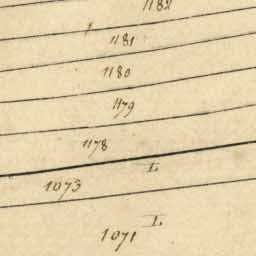 1182
1181
1180
1179
1178
I.
1073
I.
1071